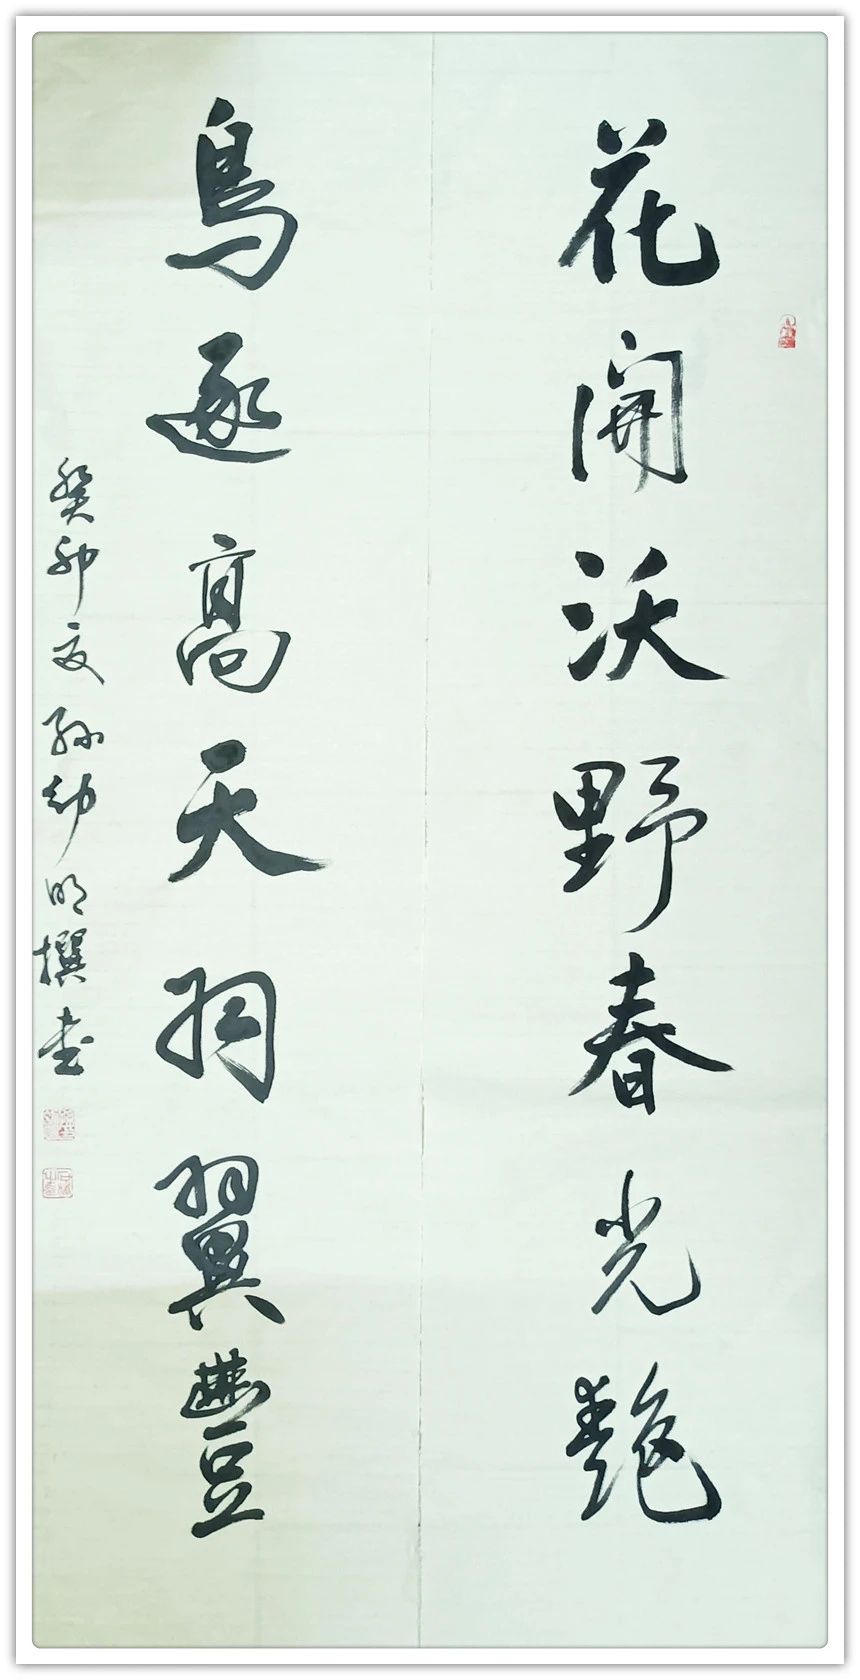 花開沃野春光艷
鳥逐高天羽翼豐
癸卯夏孫幼明撰書